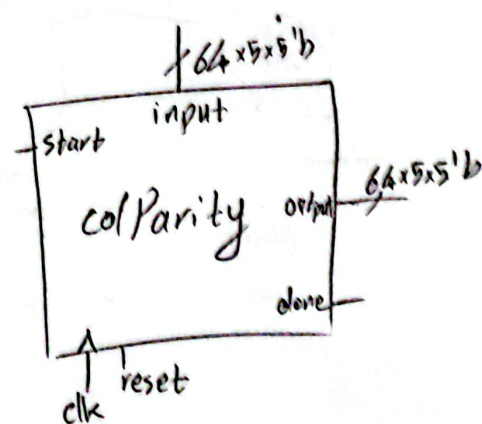 64×5×5'b
input
start
colParity
output
64×5×5'b
done
clk
reset